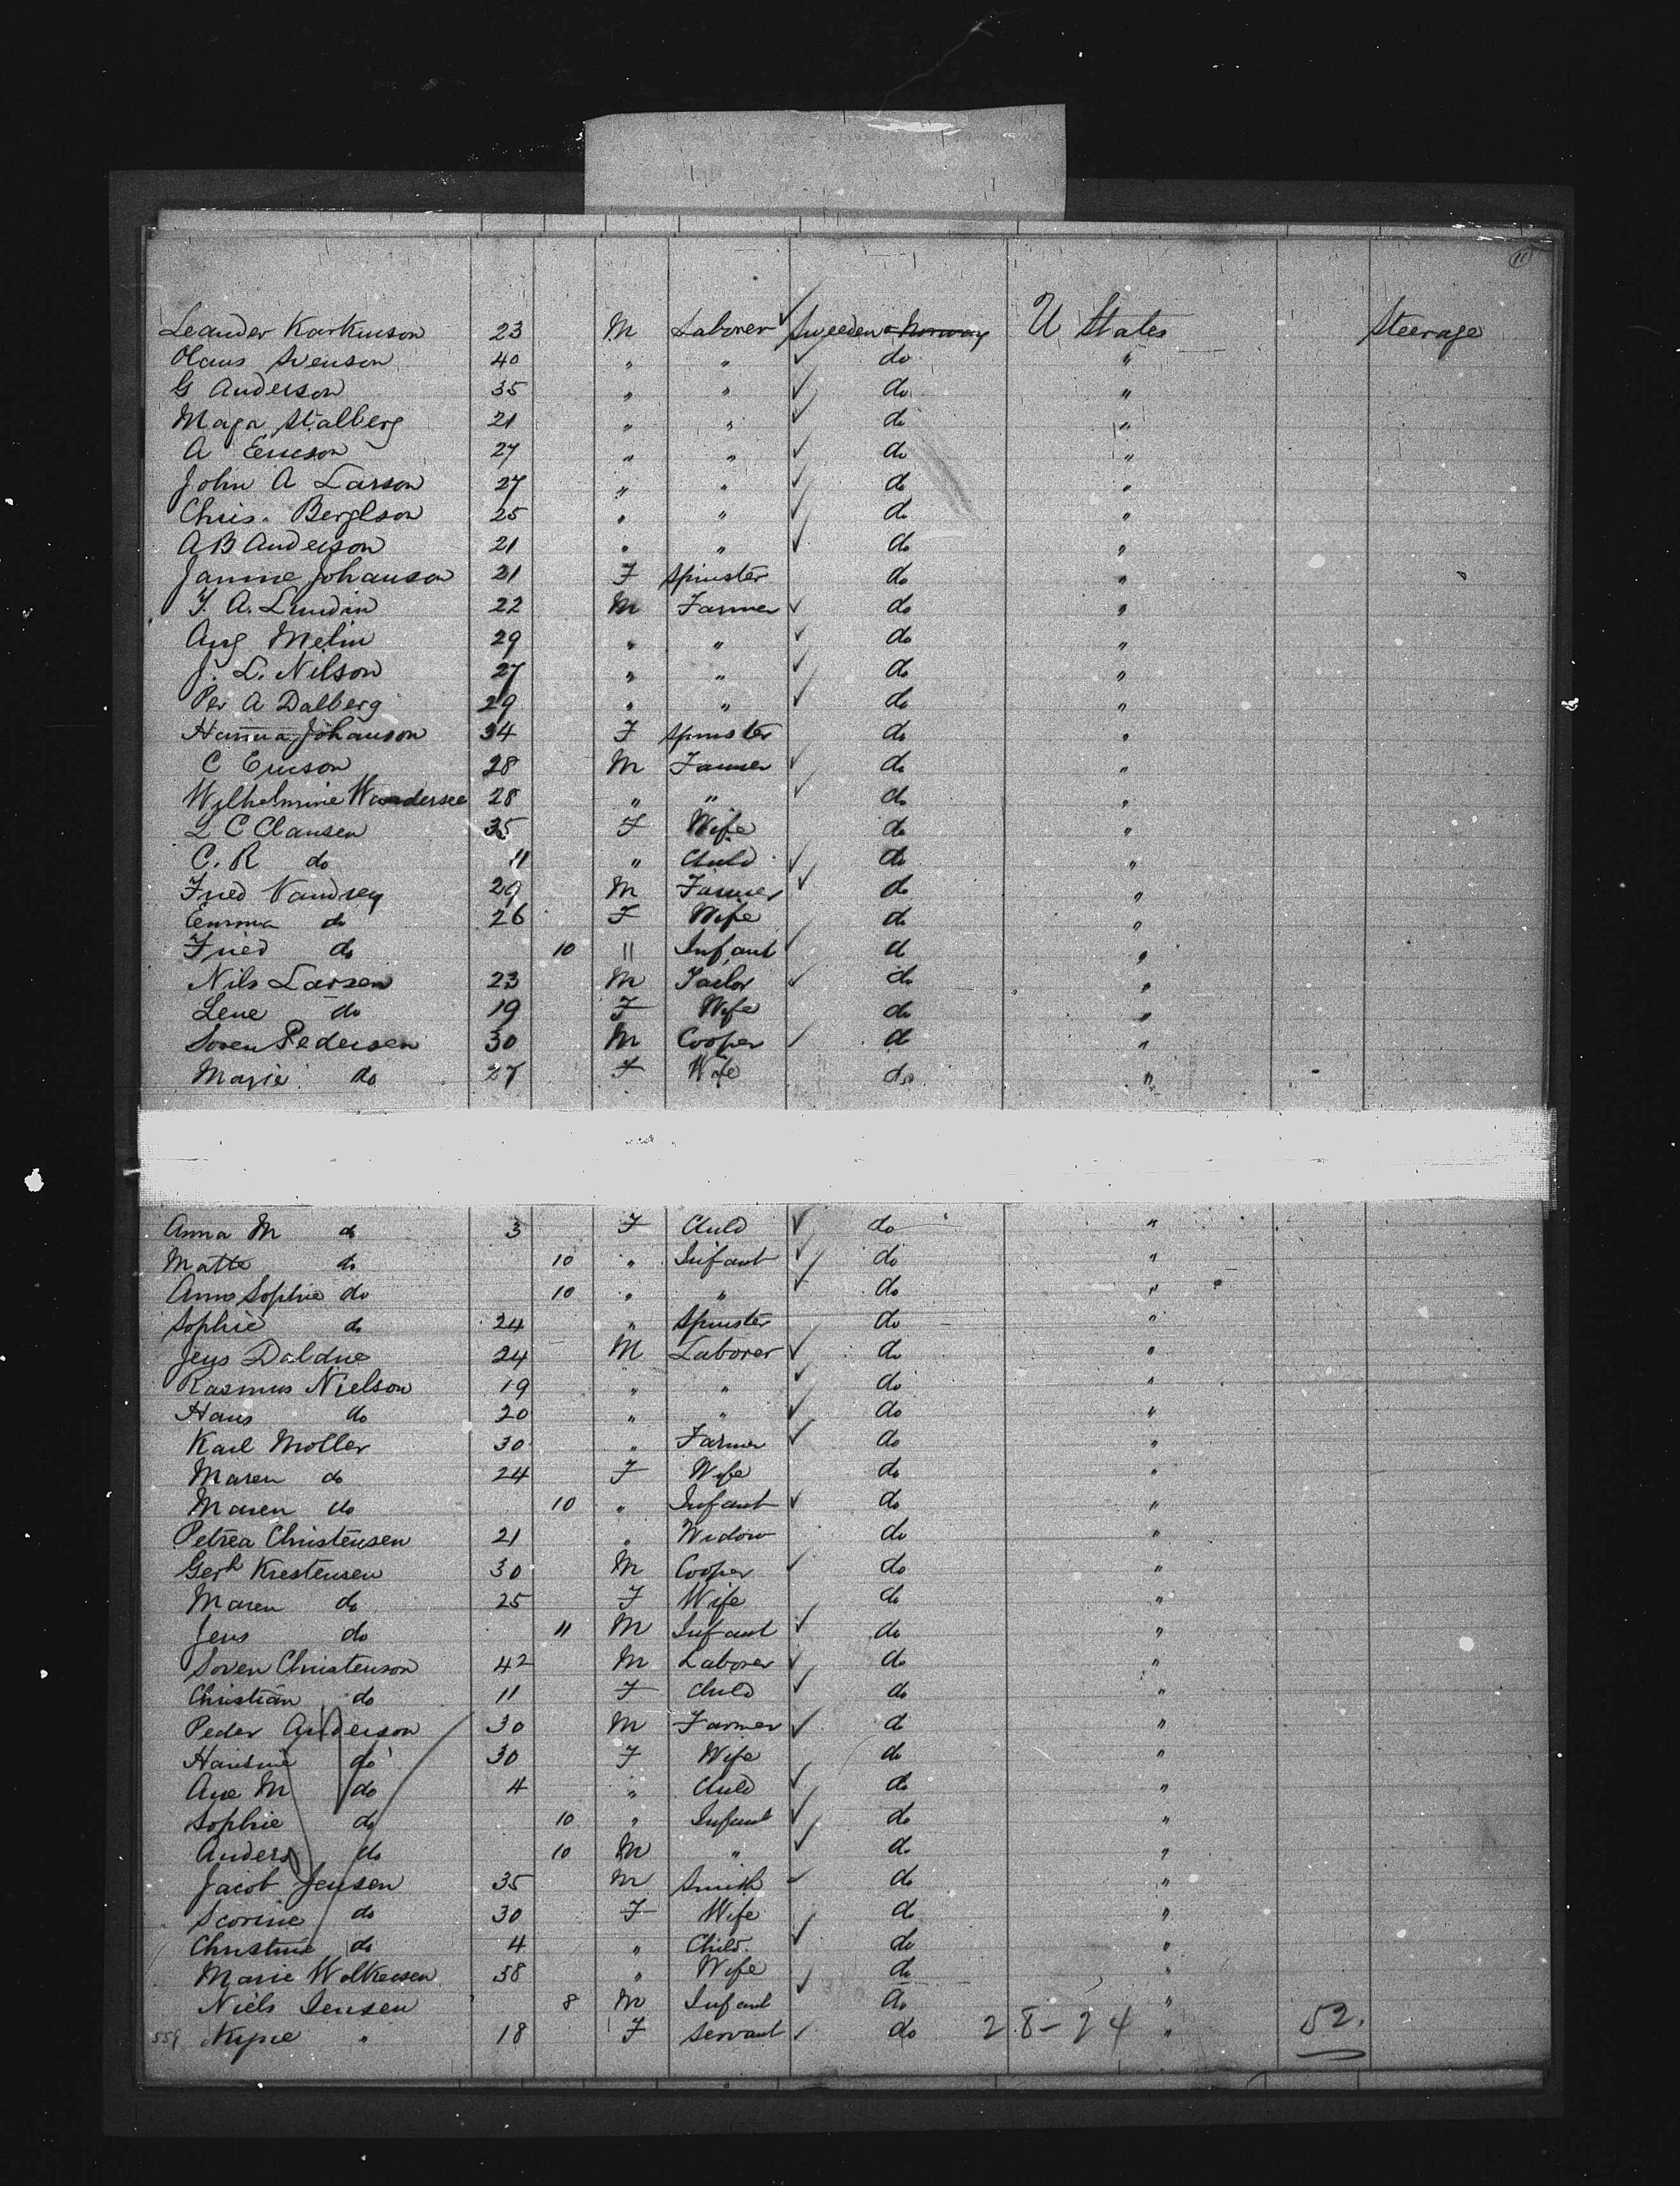 10
Leander Karkinson 23 M Laborer ✓ Sweeden & Norway U States Steerage
Olaus Svenson 40 " " ✓ do "
G Anderson 35 " " ✓ do "
Maja Stalberg 21 " " ✓ do "
A Ericson 27 " " ✓ do "
John A Larson 27 " " ✓ do "
Chris. Berglson 25 " " ✓ do "
A B Anderson 21 " " ✓ do "
Jannne Johanson 21 F Spinster do "
J. A. Lundin 22 M Farmer ✓ do "
Aug Melin 29 " " ✓ do "
J. L. Nilson 27 " " ✓ do "
Per A Dalberg 29 " " ✓ do "
Hanna Johanson 34 F Spinster do "
C Ericson 28 M Farmer ✓ do "
Wilhelmine Wandersee 28 " " ✓ do "
L C Clausen 35 F Wife do "
C. R do 11 " Child ✓ do "
Fried Vandrey 29 M Farmer ✓ do "
Emma do 26 F Wife do "
Fried do 10 " Infant ✓ do "
Nils Larsen 23 M Tailor ✓ do "
Lene do 19 F Wife do "
Soren Pedersen 30 M Cooper ✓ do "
Marie do 27 F Wife do "
Anna M do 3 F Child ✓ do "
Matte do 10 " Infant ✓ do "
Ann Sophie do 10 " " ✓ do "
Sophie do 24 " Spinster do "
Jens Daldne 24 M Laborer ✓ do "
Rasmus Nielson 19 " " ✓ do "
Hans do 20 " " ✓ do "
Karl Moller 30 " Farmer ✓ do "
Maren do 24 F Wife do "
Maren do 10 " Infant ✓ do "
Petrea Christensen 21 " Widow do "
Gerh Krestensen 30 M Cooper ✓ do "
Maren do 25 F Wife do "
Jens do 11 M Infant ✓ do "
Soren Christenson 42 M Laborer ✓ do "
Christian do 11 F Child ✓ do "
Peder Anderson 30 M Farmer ✓ do "
Hansine do 30 F Wife do "
Ane M do 4 " Child ✓ do "
Sophie do 10 " Infant ✓ do "
Anders do 10 M " ✓ do "
Jacob Jensen 35 M Smith ✓ do "
Scorine do 30 F Wife do "
Christine do 4 " Child ✓ do "
Marie Wolkersen 38 " Wife do "
Niels Jensen 8 M Infant ✓ do "
559 " 18 F Servant ✓ do 28-24 " 52.